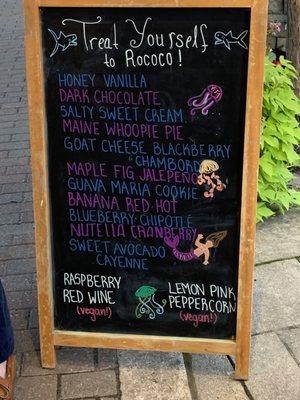 Treat Yourself
to Rococo!
HONEY VANILLA
DARK CHOCOLATE
SALTY SWEET CREAM
MAINE WHOOPIE PIE
GOAT CHEESE BLACKBERRY
CHAMBORD
MAPLE FIG JALEPEÑO
GUAVA MARIA COOKIE
BANANA RED-HOT
BLUEBERRY-CHIPOTLE
NUTELLA CRANBERRY
SWEET AVOCADO
CAYENNE
RASPBERRY
RED WINE
(vegan!)
LEMON PINK
PEPPERCORN
(vegan!)